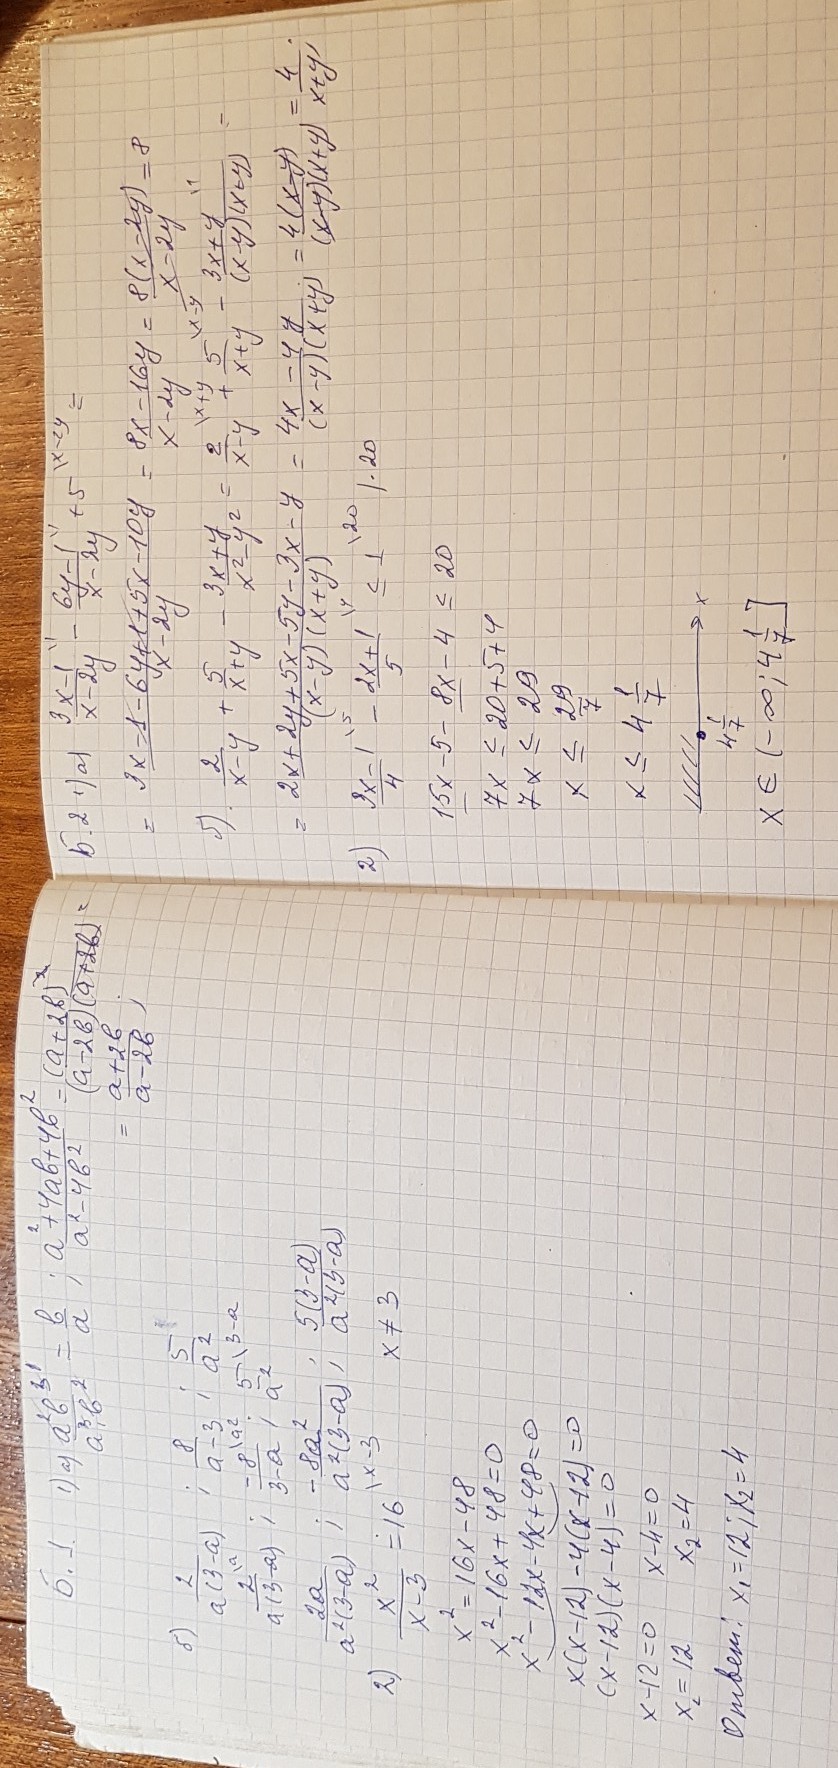 Б.1 1) а) a²b³/a³b² = b/a ; (a²+4ab+4b²)/(a²-4b²) = (a+2b)²/((a-2b)(a+2b)) =
= (a+2b)/(a-2b) ;
б) 2/(a(3-a)) ; 8/(a-3) ; 5/a²
2\a/(a(3-a)) ; -8\a²/(3-a) ; 5\3-a/a²
2a/(a²(3-a)) ; -8a²/(a²(3-a)) ; 5(3-a)/(a²(3-a))
2) x²/(x-3) = 16 \x-3 x≠3
x² = 16x-48
x²-16x+48=0
x²-12x-4x+48=0
x(x-12)-4(x+12)=0
(x-12)(x-4)=0
x-12=0 x-4=0
x₂=12 x₂=4
Ответ: x₁=12; x₂=4
Б.2 1) а) (3x-1)\1/(x-2y) - (6y-1)\1/(x-2y) + 5 \x-2y =
= (3x-1-6y+1+5x-10y)/(x-2y) = (8x-16y)/(x-2y) = 8(x-2y)/(x-2y) = 8
б) 2/(x-y) + 5/(x+y) - (3x+y)/(x²-y²) = 2\x+y/(x-y) + 5\x-y/(x+y) - (3x+y)\1/((x-y)(x+y)) =
= (2x+2y+5x-5y-3x-y)/((x-y)(x+y)) = (4x-4y)/((x-y)(x+y)) = 4(x-y)/((x-y)(x+y)) = 4/(x+y) .
2) (3x-1)\5/4 - (2x+1)\4/5 ≤ 1 \20 |·20
15x-5-8x-4 ≤ 20
7x ≤ 20+5+4
7x ≤ 29
x ≤ 29/7
x ≤ 4 1/7
4 1/7 x
x ∈ (-∞; 4 1/7]